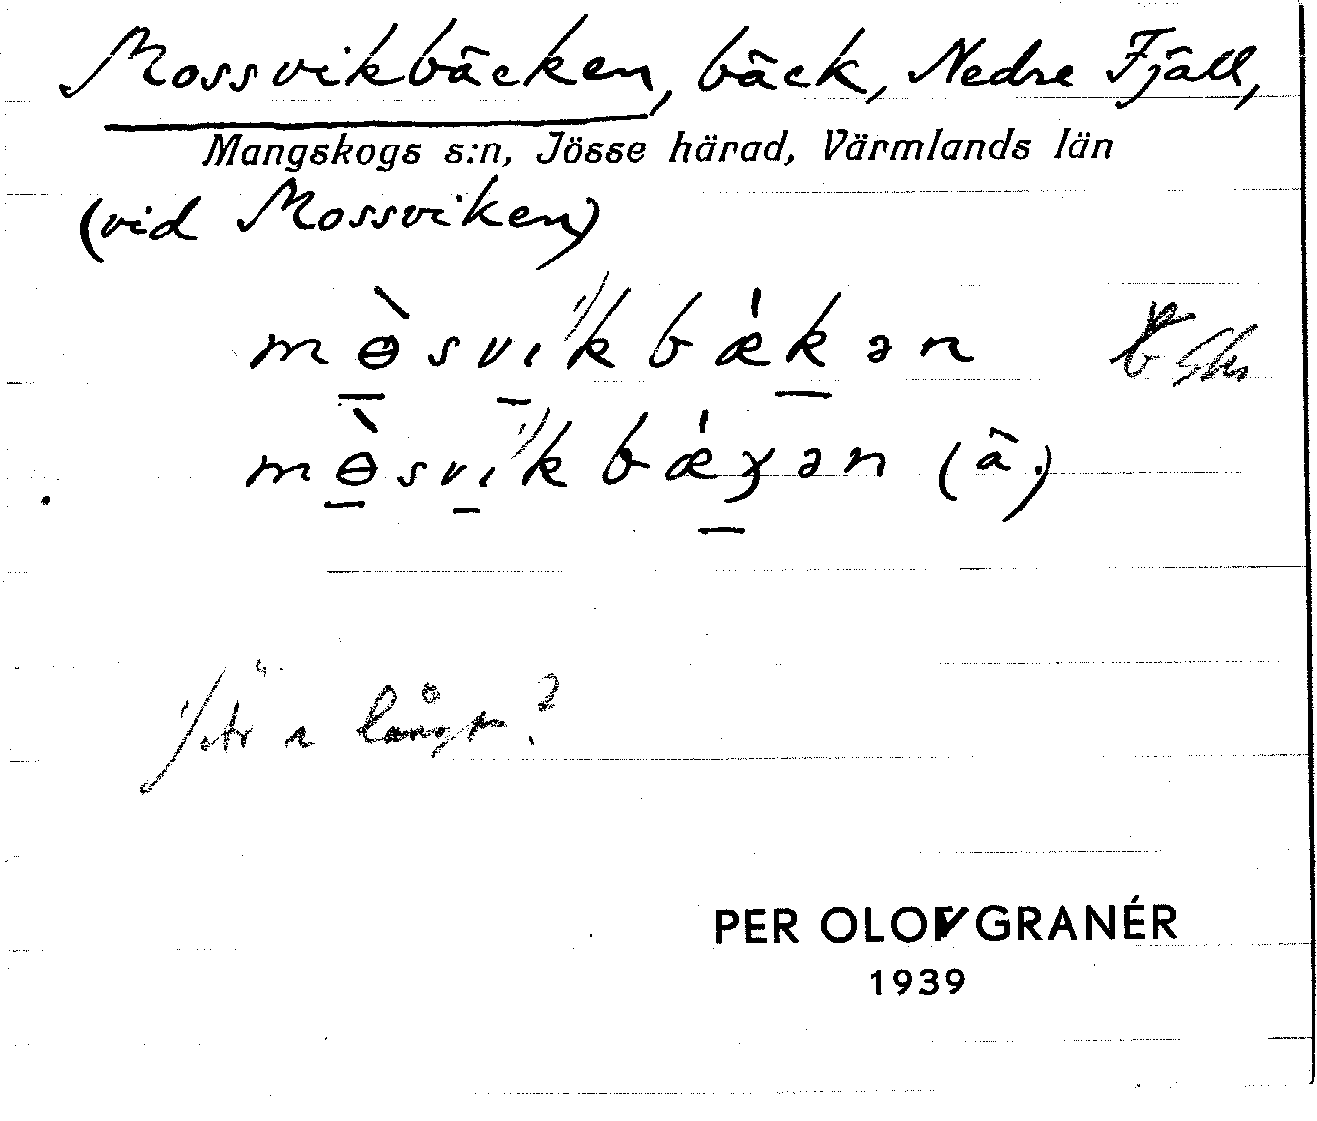 Mossvikbäcken, bäck, Nedre Fjäll,
Mangskogs s:n, Jösse härad, Värmlands län
(vid Mossviken)
mɵ̀svı 1/ kbǽkən
mɵ̀svı 1/ kbǽɣən (ä.)
1/ Är långt?
PER OLOV GRANÉR
1939